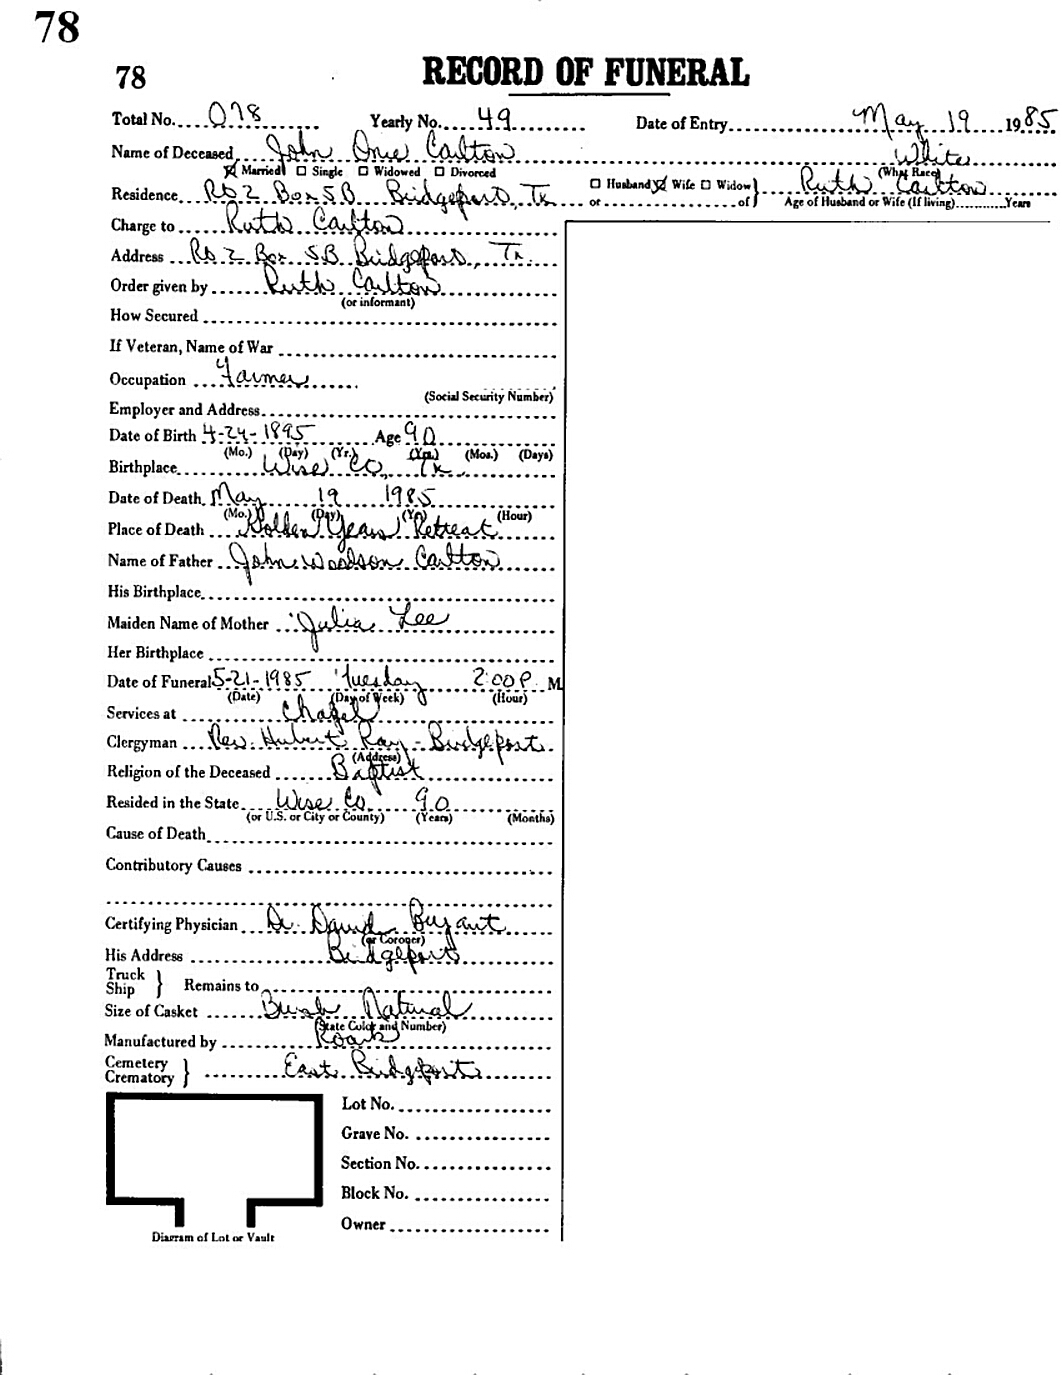 78
78 RECORD OF FUNERAL
Total No. 078 Yearly No. 49 Date of Entry May 19 1985
Name of Deceased John Carlton White
Married Single Widowed Divorced (What Race)
Residence Rt 2 Box 5B Bridgeport, Tx or Husband Wife Widow of Ruth Carlton
Age of Husband or Wife (If living) Years
Charge to Ruth Carlton
Address Rt 2 Box 5B Bridgeport, Tx.
Order given by Ruth Carlton
(or informant)
How Secured
If Veteran, Name of War
Occupation Farmer
(Social Security Number)
Employer and Address
Date of Birth 4-24-1895 Age 90
(Mo.) (Day) (Yr.) (Yrs.) (Mos.) (Days)
Birthplace Wise Co, Tx.
Date of Death May 19 1985
(Mo.) (Day) (Yr.) (Hour)
Place of Death Golden Years Retreat
Name of Father John Woodson Carlton
His Birthplace
Maiden Name of Mother Julia Lee
Her Birthplace
Date of Funeral 5-21-1985 Tuesday 2:00 P M
(Date) (Day of Week) (Hour)
Services at Chapel
Clergyman Rev. Hubert Ray - Bridgeport
(Address)
Religion of the Deceased Baptist
Resided in the State Wise Co. 90
(or U.S. or City or County) (Years) (Months)
Cause of Death
Contributory Causes
Certifying Physician Dr. David Bryant
(or Coroner)
His Address Bridgeport
Truck
Ship } Remains to
Size of Casket Natural
(State Color and Number)
Manufactured by Roark
Cemetery
Crematory } East Bridgeport
Lot No.
Grave No.
Section No.
Block No.
Owner
Diagram of Lot or Vault